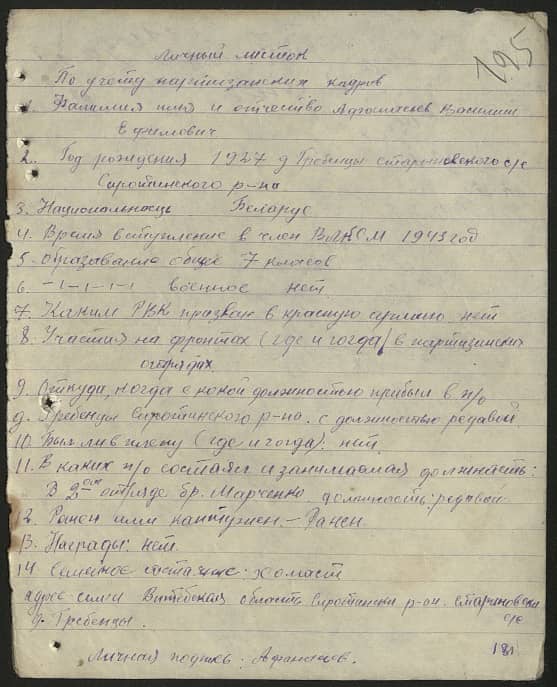 195
Личный листок
По учету партизанских кадров
1. Фамилия имя и отчество Афонасьев Василий
Ефимович
2. Год рождения 1927 д Гребенцы с/с
Сиротинского р-на
3. Национальность Беларус
4. Время вступление в член ВЛКСМ 1943 год
5. образавание общее 7 класов
6. -1-1-1-1 военное нет
7. Каким РВК призван в красную армию нет
8. Участия на фронтах (где и когда) в партизанских
отрядах.
9. Откуда, когда с какой должностью прибыл в п/о
д. Гребенцы Сиротинского р-на. с должностью редавой
10. Был ли в плену (где и когда): нет.
11. В каких п/о состаял и занимаемая должность:
В 2ом отряде бр. Марченко должность: редавой
2. Ранен или кантужен. - Ранен.
13. Награды: нет.
14. Семейное : холаст
адрес семи Витебская область р-он.
с/с
д. Гребенцы.
181
Личная подпись: Афанасьев.